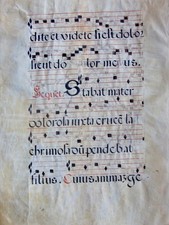 dite et videte si est dolor
sicut do lor meus.
Sequet. Stabat mater
dolorosa iuxta crucē la
chrimosa dū pende bat
filius. Cuius animā ge